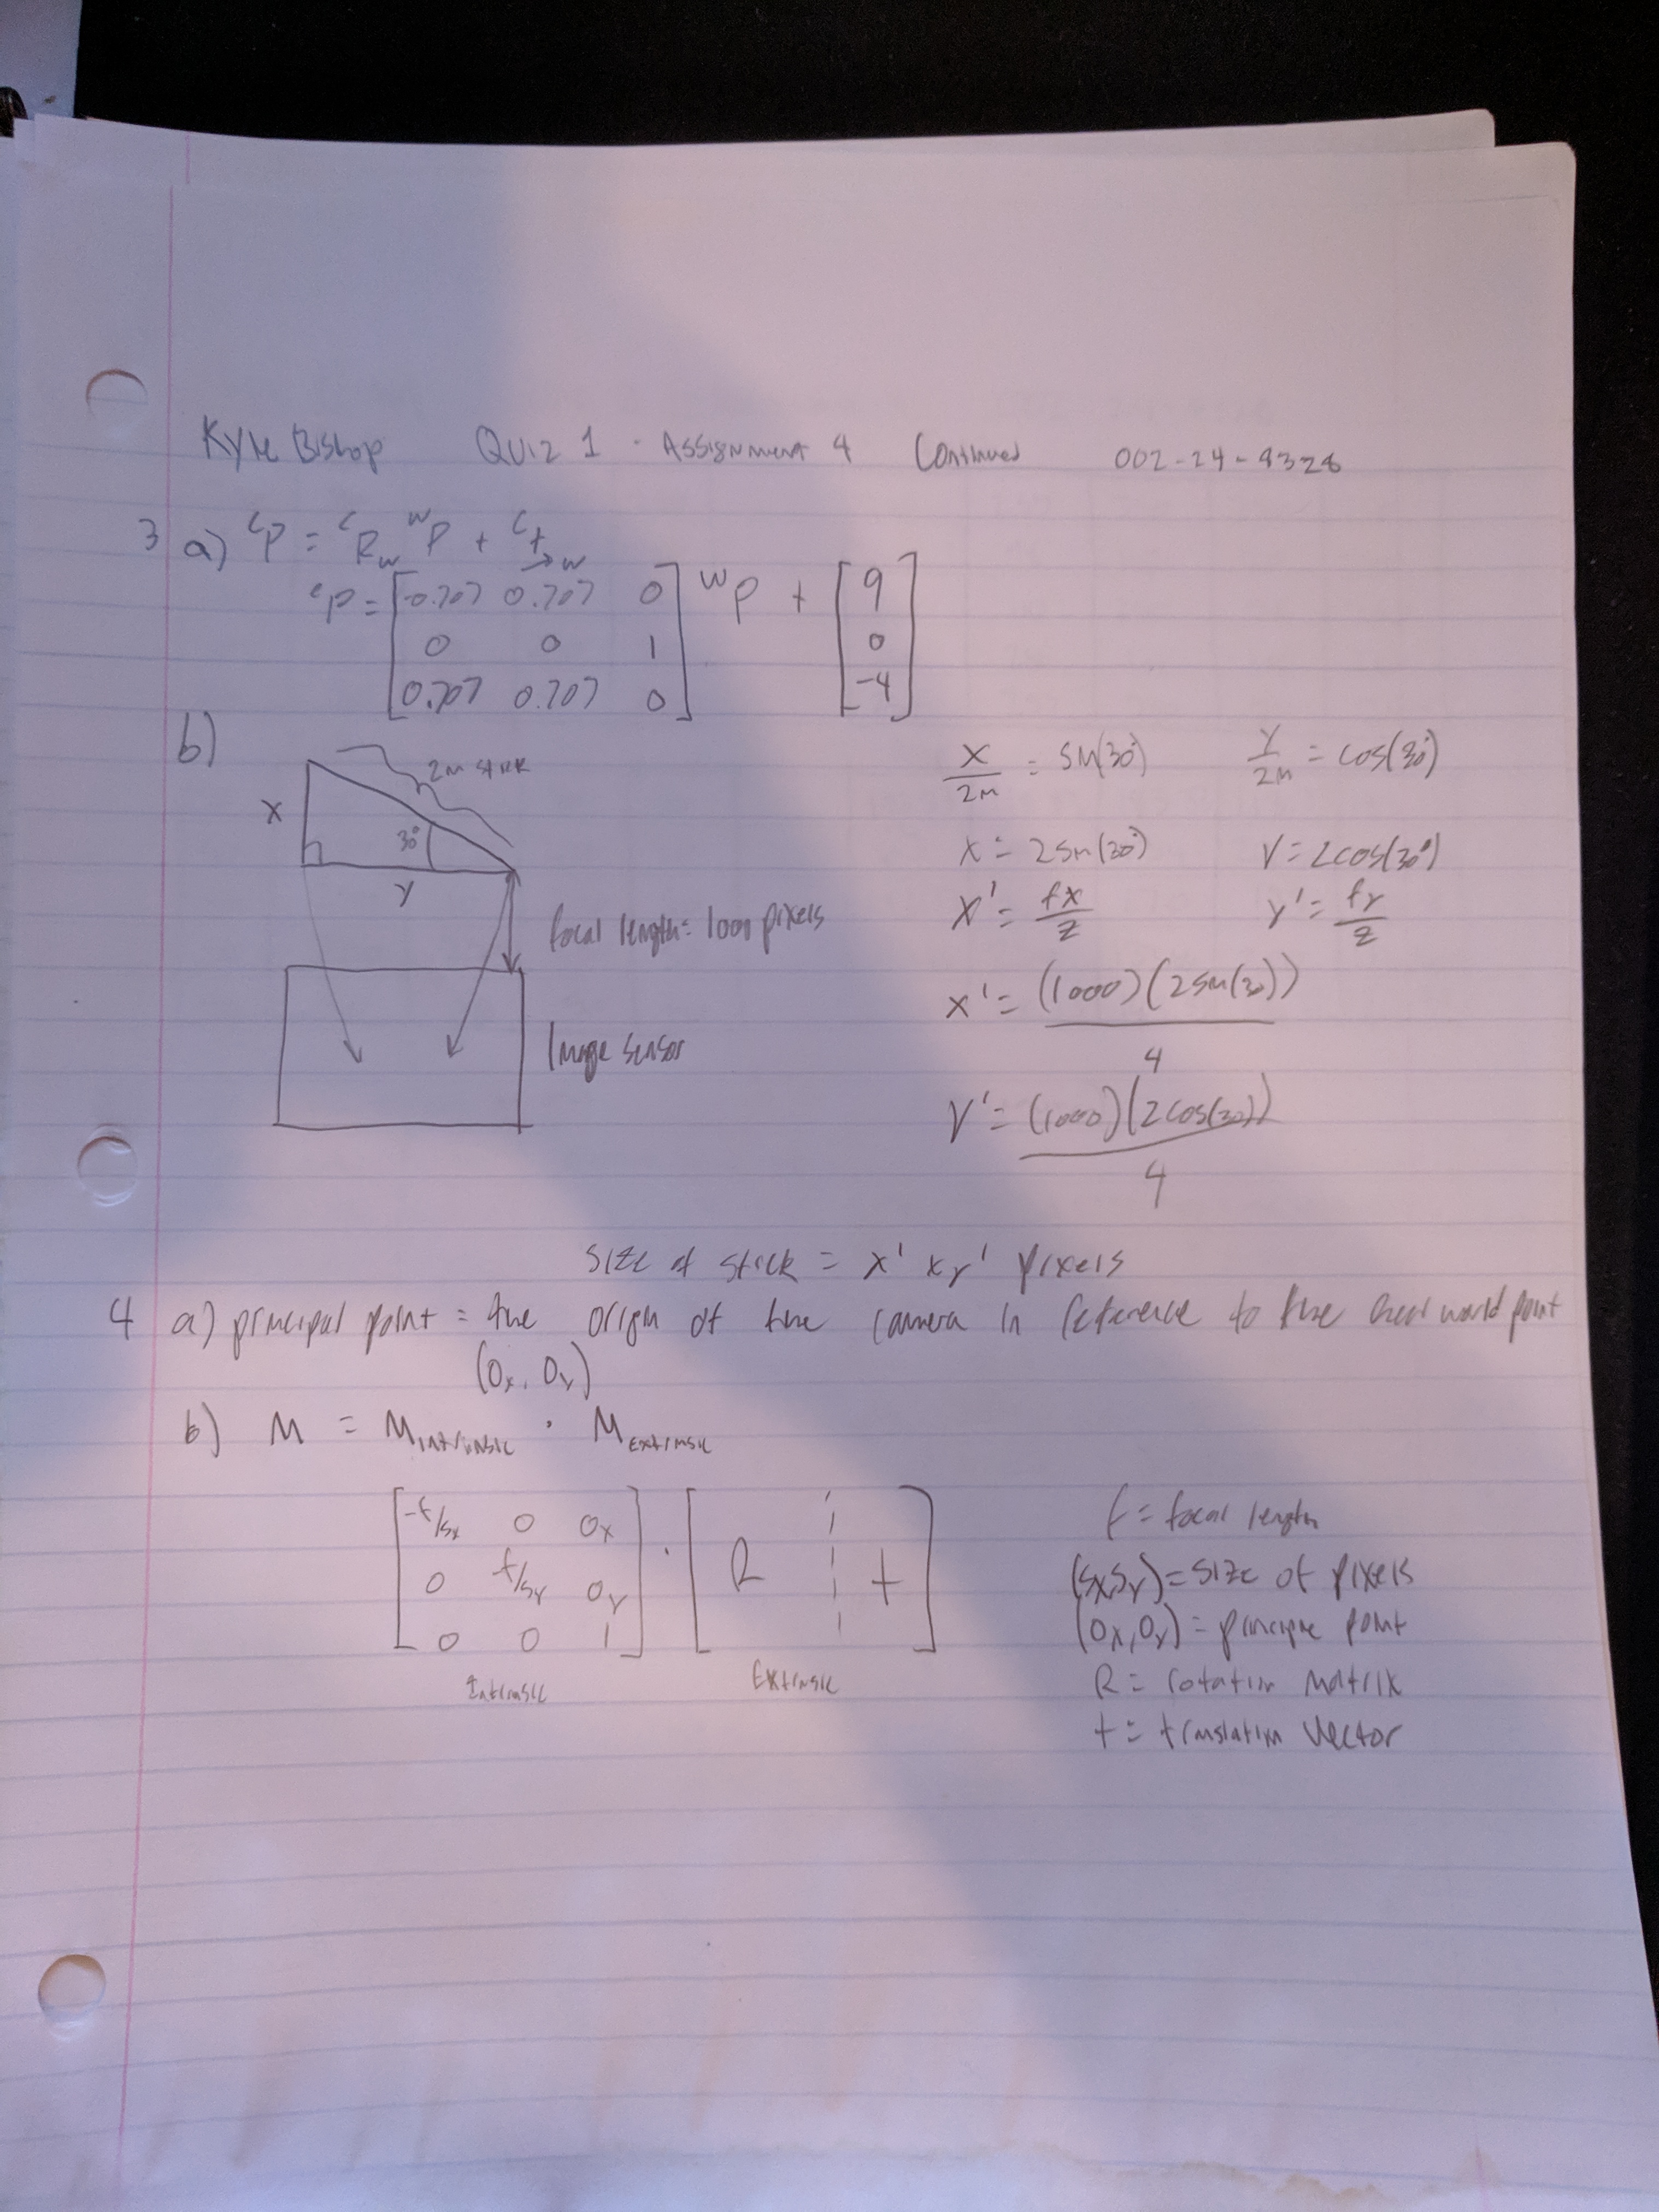 Kyle Bishop Quiz 1 - Assignment 4 Continued 002-24-9328
3 a) ᶜP = ᶜR_w ʷP + ᶜt_w
ᶜP = [-0.707 0.707 0] ʷP + [9]
0 0 1 0
0.707 0.707 0 -4
b)
2m stick
x
30°
y
focal length = 1000 pixels
Image sensor
x/2m = sin(30°) y/2m = cos(30°)
x = 2sin(30°) y = 2cos(30°)
x' = fx/z y' = fy/z
x' = (1000)(2sin(30))/4
y' = (1000)(2cos(30))/4
size of stick = x' x y' pixels
4 a) principal point = the origin of the camera in reference to the world point
(Ox, Oy)
b) M = M_Intrinsic · M_Extrinsic
[-f/sx 0 Ox] · [R ¦ t]
0 f/sy Oy
0 0 1
Intrinsic Extrinsic
f = focal length
(sx, sy) = size of pixels
(Ox, Oy) = principle point
R = rotation matrix
t = translation vector